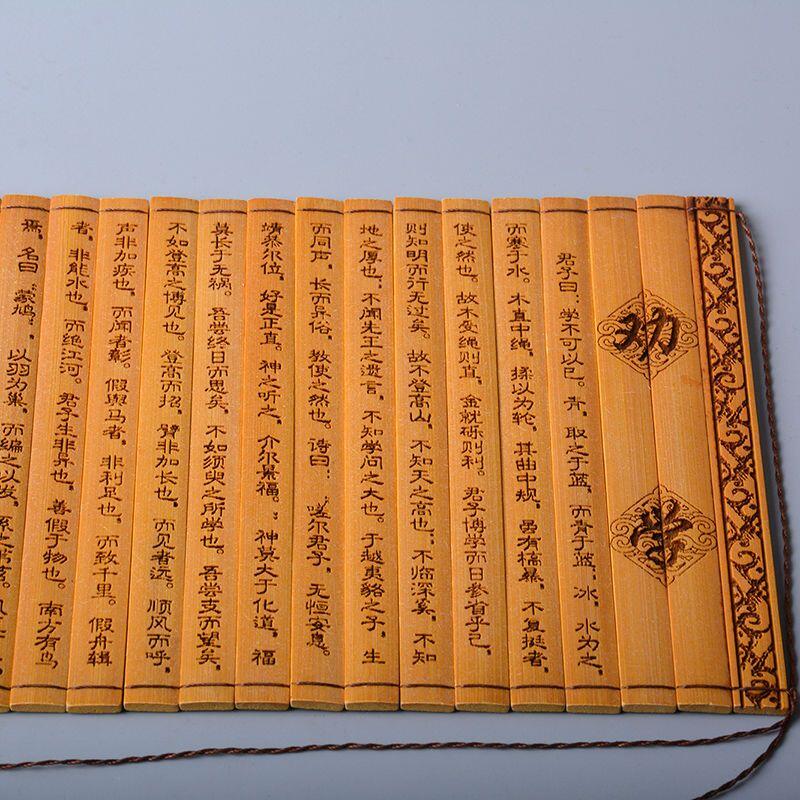 劝学
君子曰：学不可以已。青，取之于蓝，而青于蓝；冰，水为之，
而寒于水。木直中绳，揉以为轮，其曲中规，虽有槁暴，不复挺者，
使之然也。故木受绳则直，金就砾则利。君子博学而日参省乎己，
则知明而行无过矣。故不登高山，不知天之高也；不临深溪，不知
地之厚也；不闻先王之遗言，不知学问之大也。于越夷貉之子，生
而同声，长而异俗，教使之然也。诗曰：“嗟尔君子，无恒安息。
靖恭尔位，好是正直。神之听之，介尔景福。”神莫大于化道，福
莫长于无祸。吾尝终日而思矣，不如须臾之所学也。吾尝跂而望矣，
不如登高之博见也。登高而招，臂非加长也，而见者远。顺风而呼，
声非加疾也，而闻者彰。假舆马者，非利足也，而致千里。假舟楫
者，非能水也，而绝江河。君子生非异也，善假于物也。南方有鸟
焉，名曰“蒙鸠”，以羽为巢，而编之以发，系之苇苕。